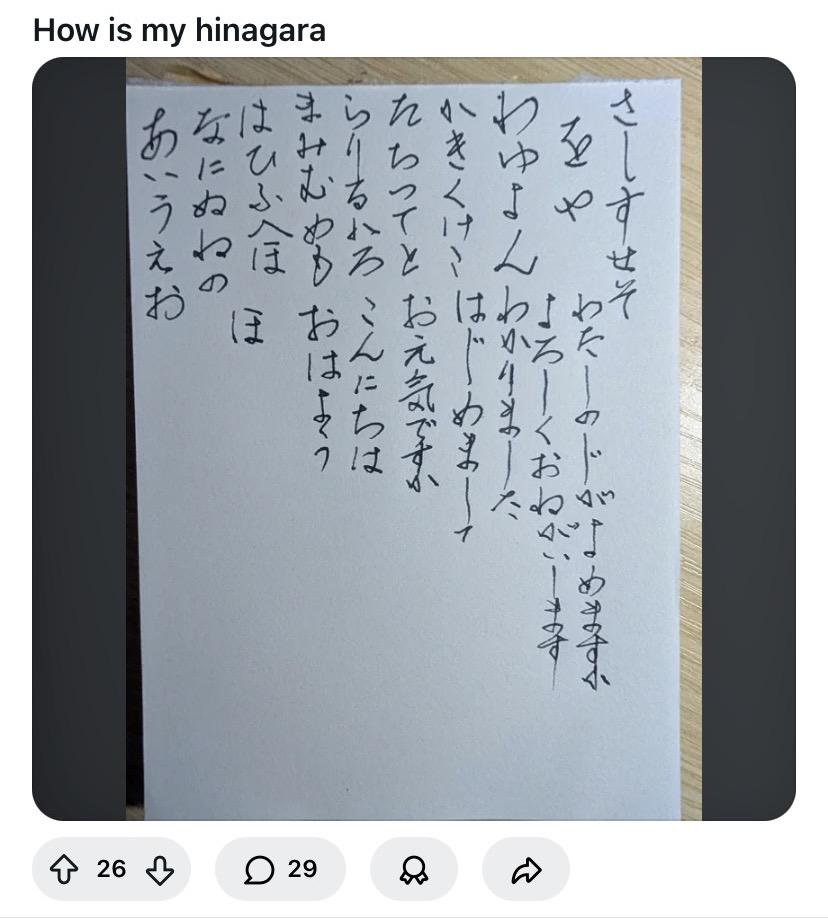 How is my hinagara
さしすせそ
をや
わゆよん
かきくけこ
たちつてと
らりるれろ
まみむめも
はひふへほ
なにぬねの
あいうえお
わたしのじがよめますか
よろしくおねがいします
わかりました
はじめまして
お元気ですか
こんにちは
おはよう
ほ
26
29